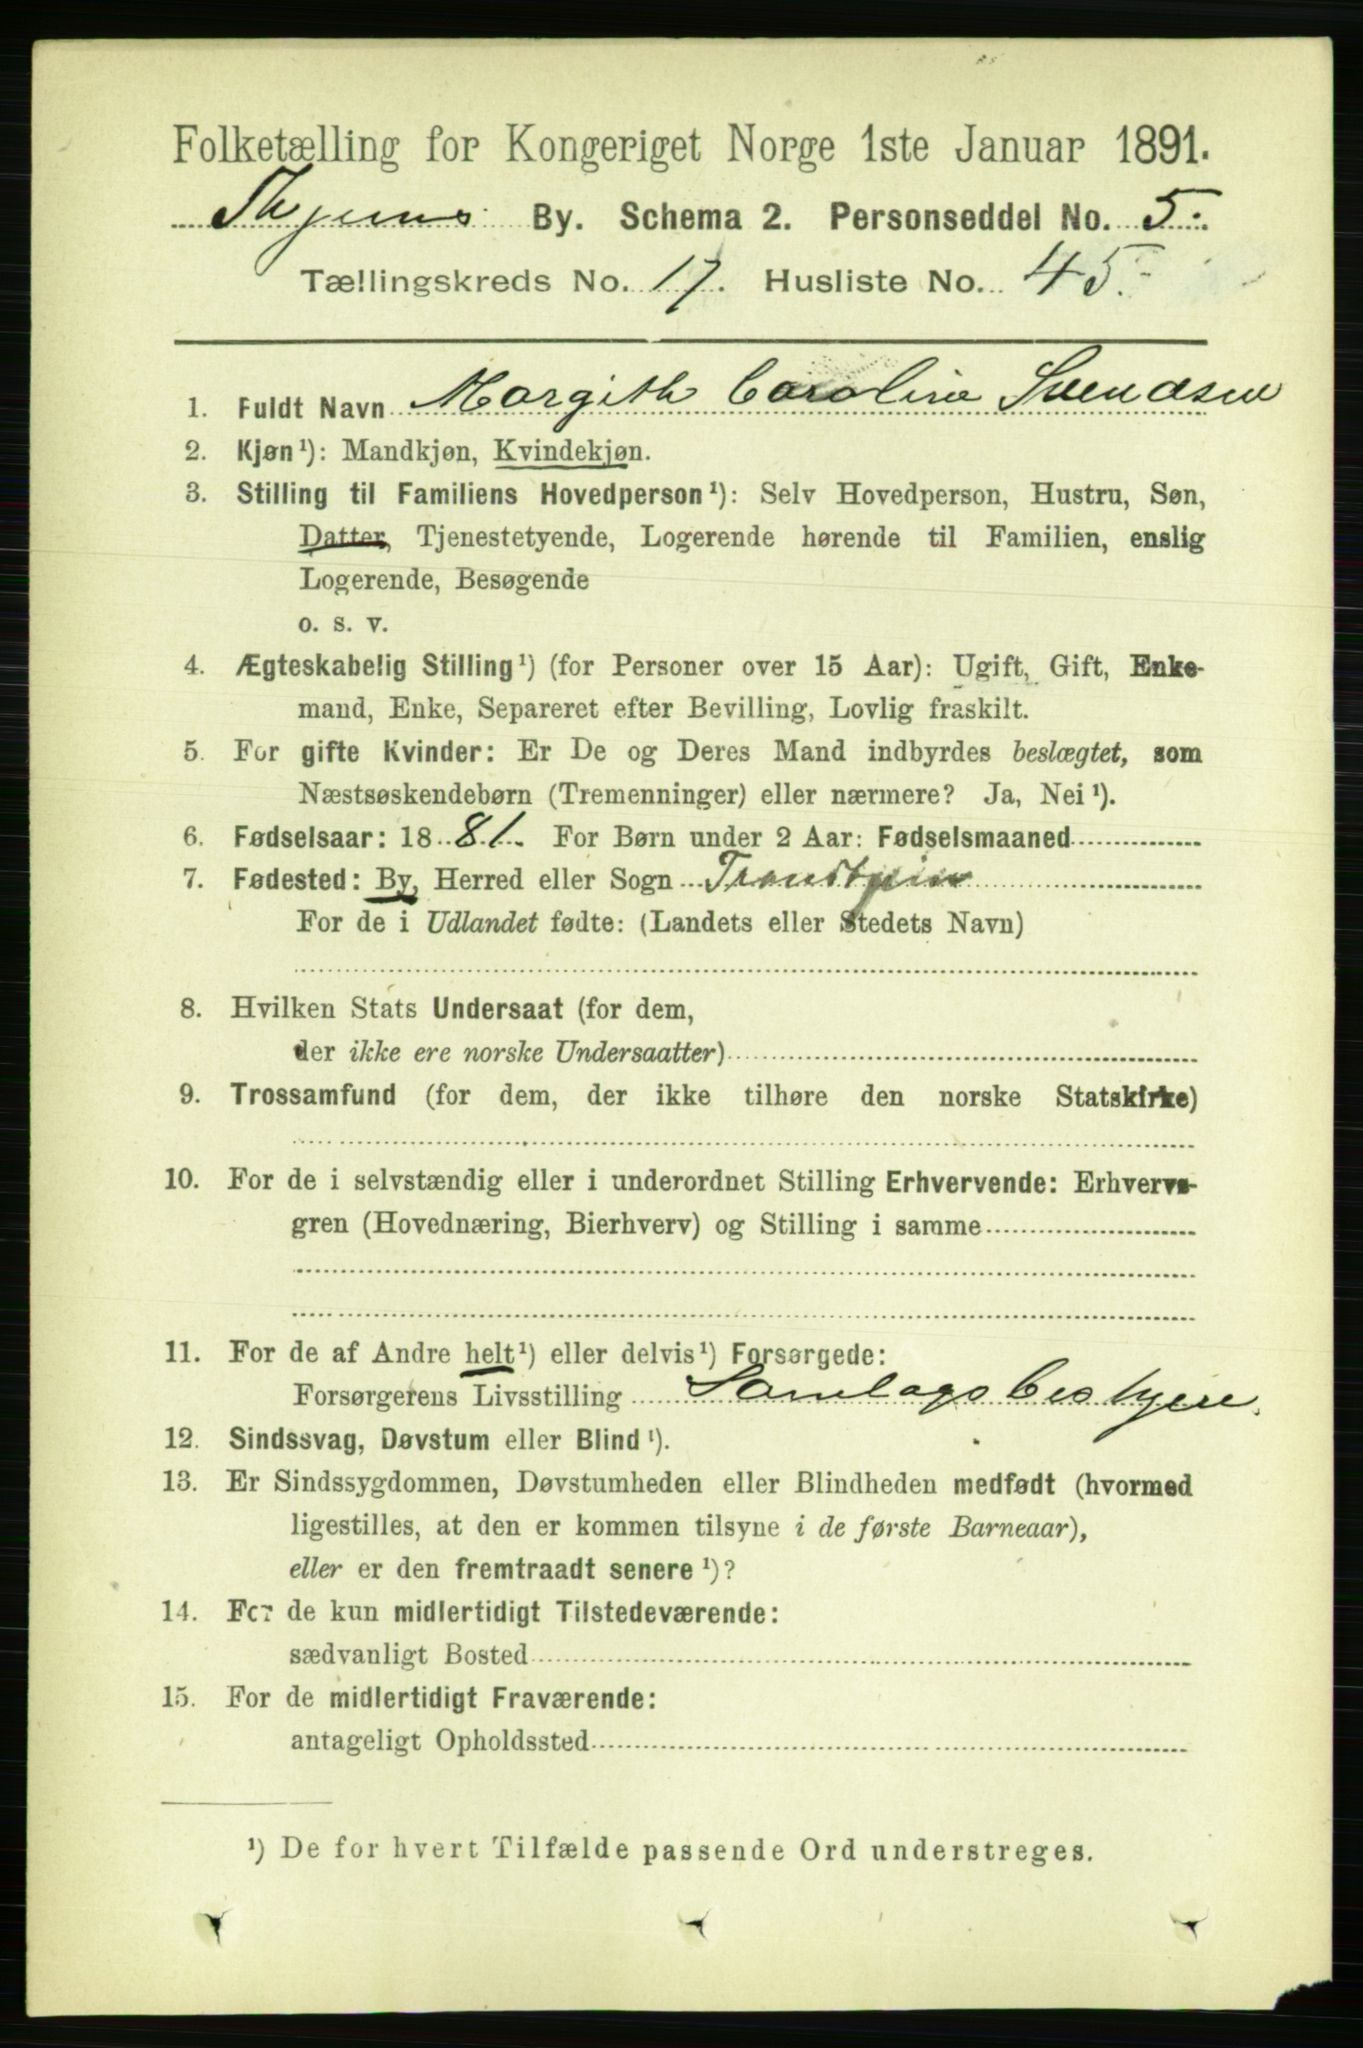 Folketælling for Kongeriget Norge 1ste Januar 1891.
Thjems By. Schema 2. Personseddel No. 5.
Tællingskreds No. 17. Husliste No. 45.
1. Fuldt Navn Margith Caroline Svendsen
2. Kjøn¹): Mandkjøn, Kvindekjøn.
3. Stilling til Familiens Hovedperson¹): Selv Hovedperson, Hustru, Søn,
Datter, Tjenestetyende, Logerende hørende til Familien, enslig
Logerende, Besøgende
o. s. v.
4. Ægteskabelig Stilling¹) (for Personer over 15 Aar): Ugift, Gift, Enke-
mand, Enke, Separeret efter Bevilling, Lovlig fraskilt.
5. For gifte Kvinder: Er De og Deres Mand indbyrdes beslægtet, som
Næstsøskendebørn (Tremenninger) eller nærmere? Ja, Nei¹).
6. Fødselsaar: 1881. For Børn under 2 Aar: Fødselsmaaned
7. Fødested: By, Herred eller Sogn Trondhjem
For de i Udlandet fødte: (Landets eller Stedets Navn)
8. Hvilken Stats Undersaat (for dem,
der ikke ere norske Undersaatter)
9. Trossamfund (for dem, der ikke tilhøre den norske Statskirke)
10. For de i selvstændig eller i underordnet Stilling Erhvervende: Erhvervs-
gren (Hovednæring, Bierhverv) og Stilling i samme
11. For de af Andre helt¹) eller delvis¹) Forsørgede:
Forsørgerens Livsstilling Samlagsbestyrer.
12. Sindssvag, Døvstum eller Blind¹).
13. Er Sindssygdommen, Døvstumheden eller Blindheden medfødt (hvormed
ligestilles, at den er kommen tilsyne i de første Barneaar),
eller er den fremtraadt senere¹)?
14. For de kun midlertidigt Tilstedeværende:
sædvanligt Bosted
15. For de midlertidigt Fraværende:
antageligt Opholdssted
¹) De for hvert Tilfælde passende Ord understreges.